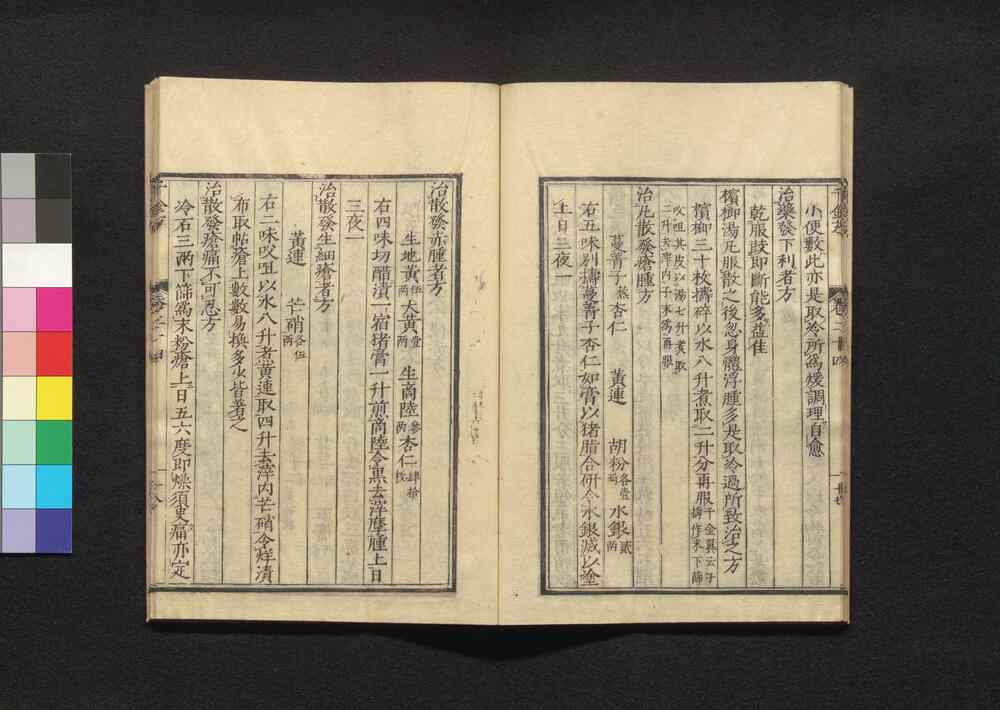 小便數此亦是取冷所爲煖調理自愈
治藥發下利者方
乾服豉即斷能多益佳
檳榔湯凡服散之後忽身體浮腫多是取冷過所致治之方
檳榔三十枚擣碎以水八升煮取二升分再服千金翼云子擣作末下篩
㕮咀其皮以湯七升煮取二升半去滓内子末爲再服
治凡散發瘡腫方
蔓菁子熬 杏仁 黃連 胡粉各壹兩 水銀貳兩
右五味別擣蔓菁子杏仁如膏以猪脂合研令水銀滅以塗
上日三夜一
治散發赤腫者方
生地黃伍兩 大黃壹兩 生商陸參兩 杏仁肆拾枚
右四味切醋漬一宿猪膏一升煎商陸令黑去滓摩腫上日
三夜一
治散發生細瘡者方
黃連 芒硝各伍兩
右二味㕮咀以水八升煮黃連取四升去滓内芒硝令烊漬
布取帖瘡上數數易換多少皆著之
治散發瘡痛不可忍方
冷石三兩下篩爲末粉瘡上日五六度即燥須臾痛亦定